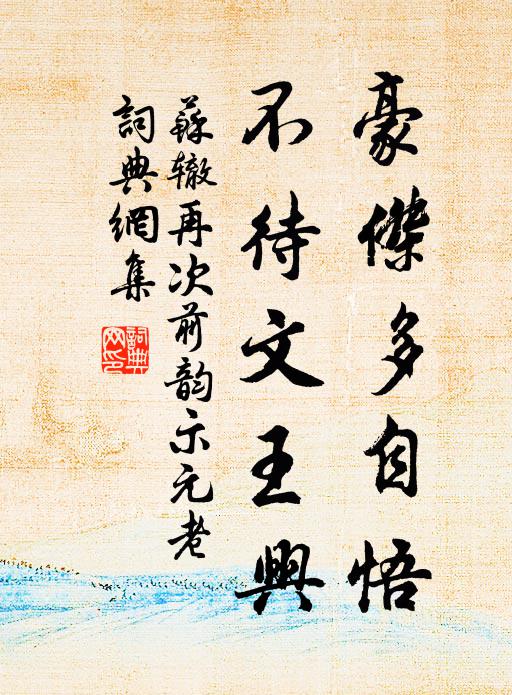 豪傑多自悟
不待文王興
蘇轍再次前韵示元老
詞典網集
詞典網印